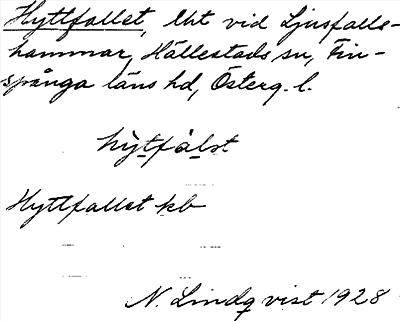 Hyttfallet, lht vid Ljusfalls-
hammar, Hällestads sn, Fin-
spånga läns hd, Österg. l.
hỳtfàlst
Hyttfallet kb
N. Lindqvist 1928